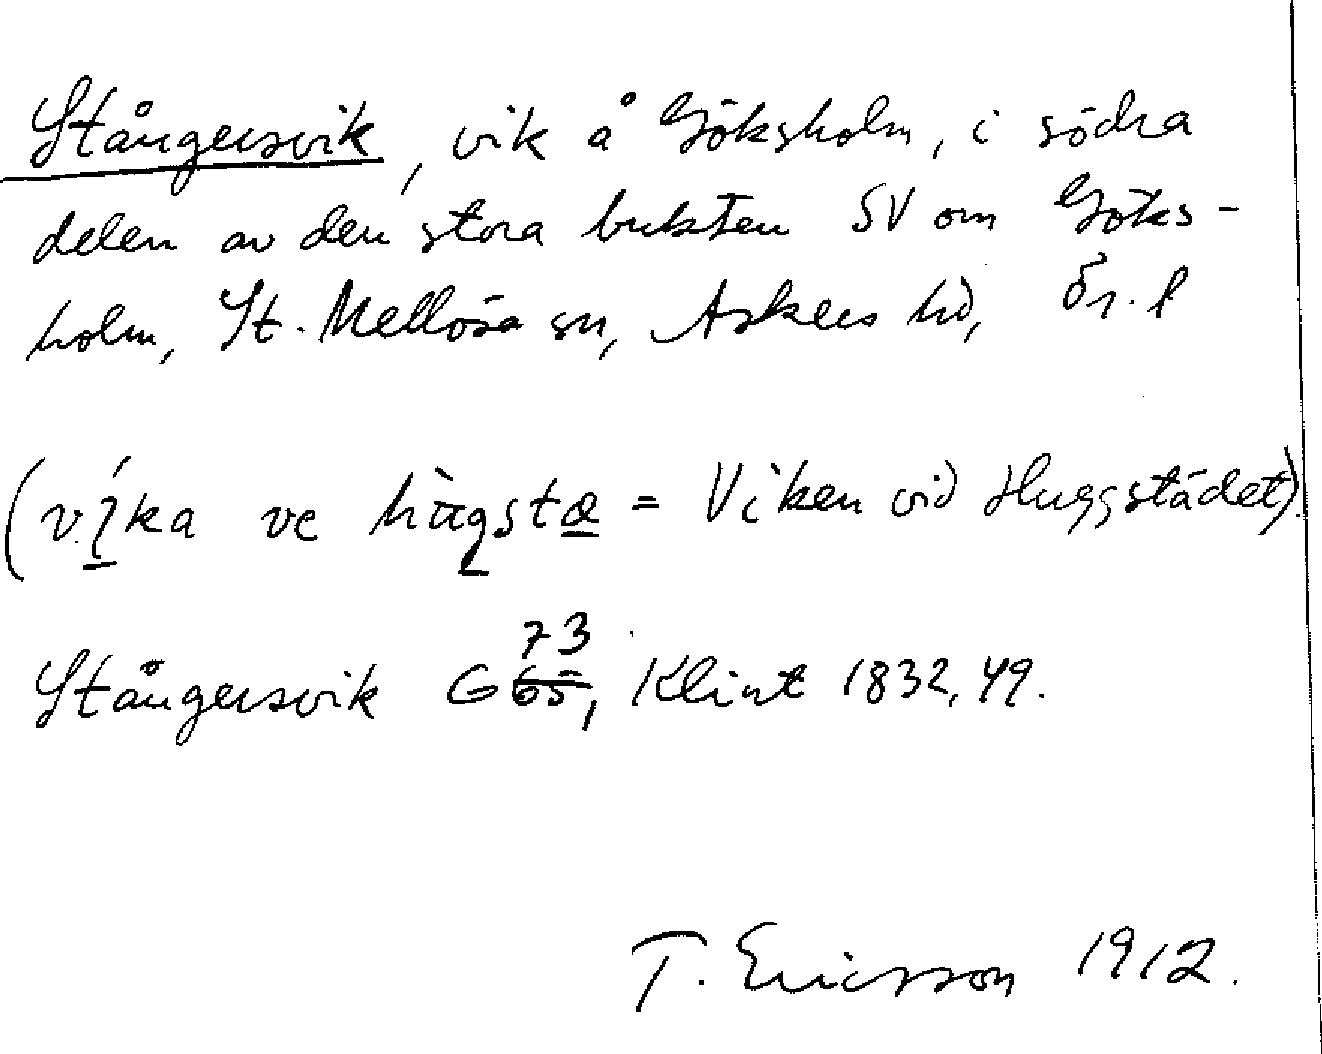 Stångersvik, vik å Göksholm, i södra
delen av den stora bukten SV om Göks-
holm, St. Mellösa sn, Askers hd, Ör. l
(ví̱ka ve hùgstæ = Viken vid Huggstädet).
73
Stångersvik G 65, Klint 1832, 49.
T. Ericsson 1912.